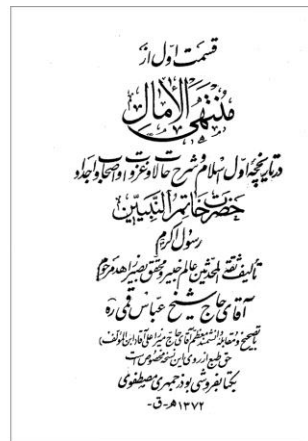 قسمت اول از
منتهی الامال
در تاریخچهٔ اول اسلام و شرح حالات و غزوات و اصحاب و اجداد
حضرت خاتم النبیین
رسول اکرم
تألیف ثقة المحدثین عالم خبیر و محقق بصیر زاهد مرحوم
آقای حاج شیخ عباس قمی ره
با تصحیح و مقابله دانشمند معظم آقای حاج میرزا علی آقا (ابن المؤلف)
حق طبع از روی این نسخه مخصوص است
بکتابفروشی بوذرجمهری مصطفوی
۱۳۷۲ هـ - ق -